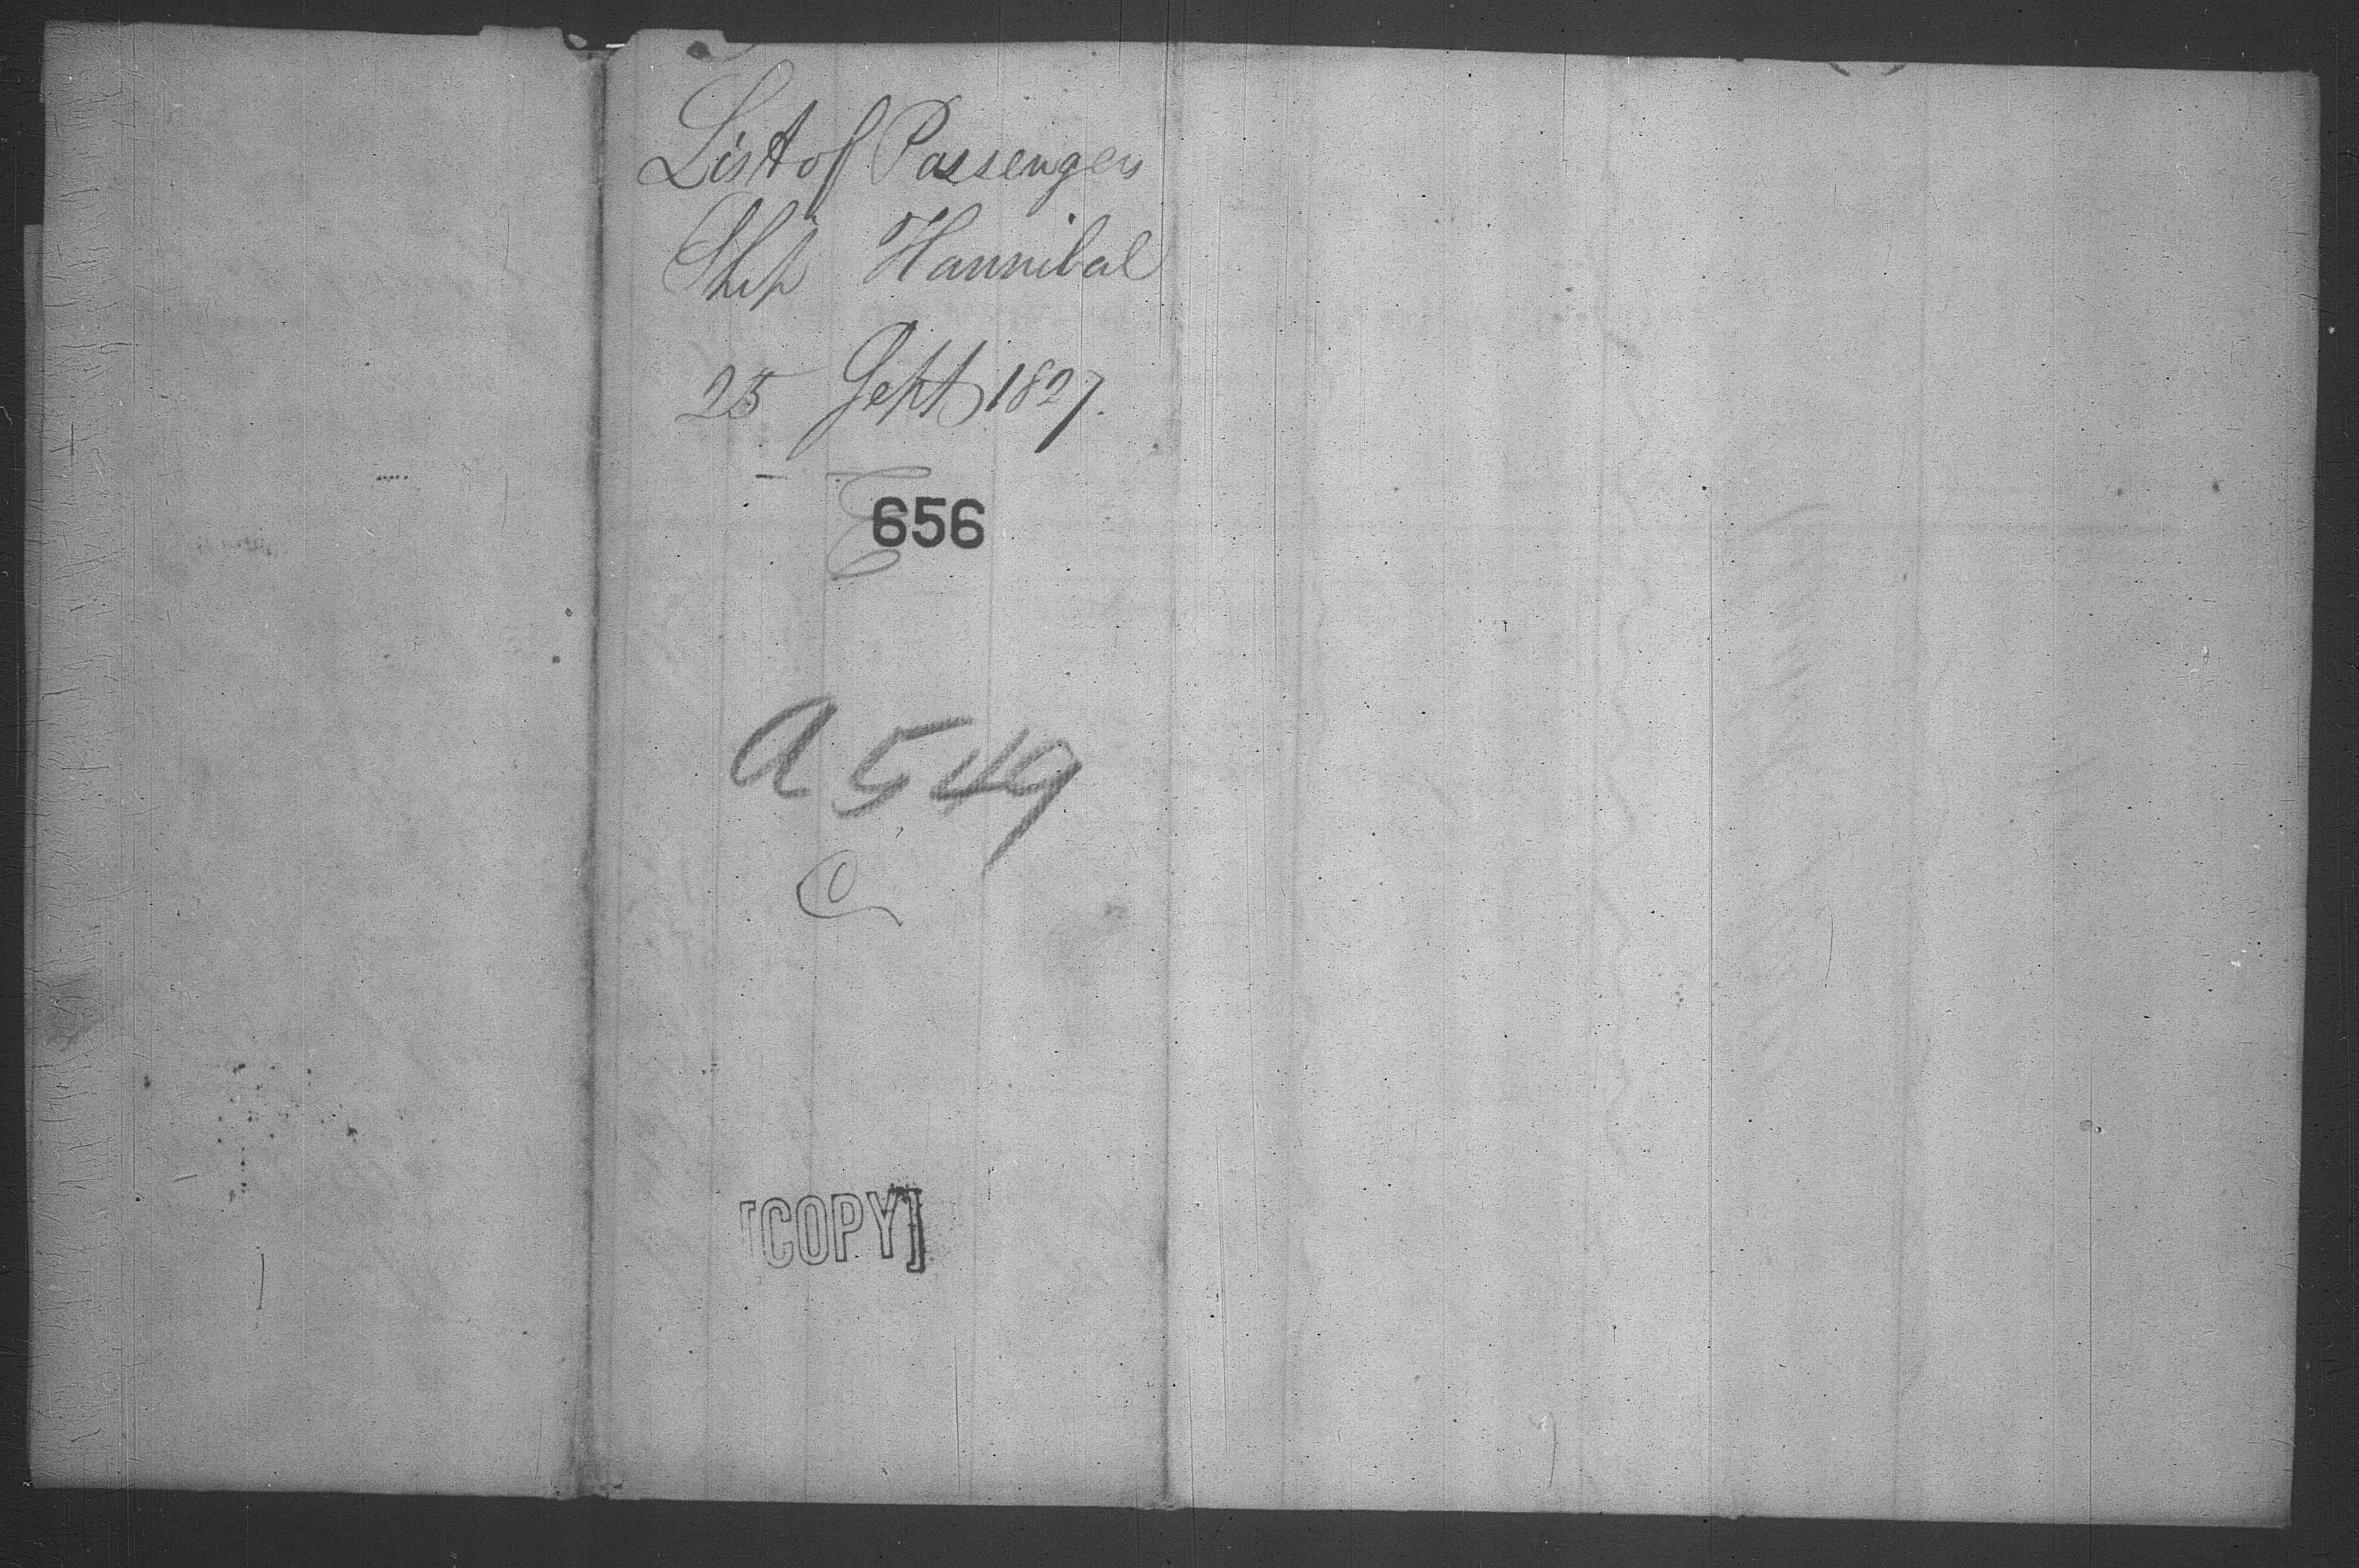 List of Passengers
Ship Hannibal
25 Sept 1827.
E
656
A 549
C
[COPY]